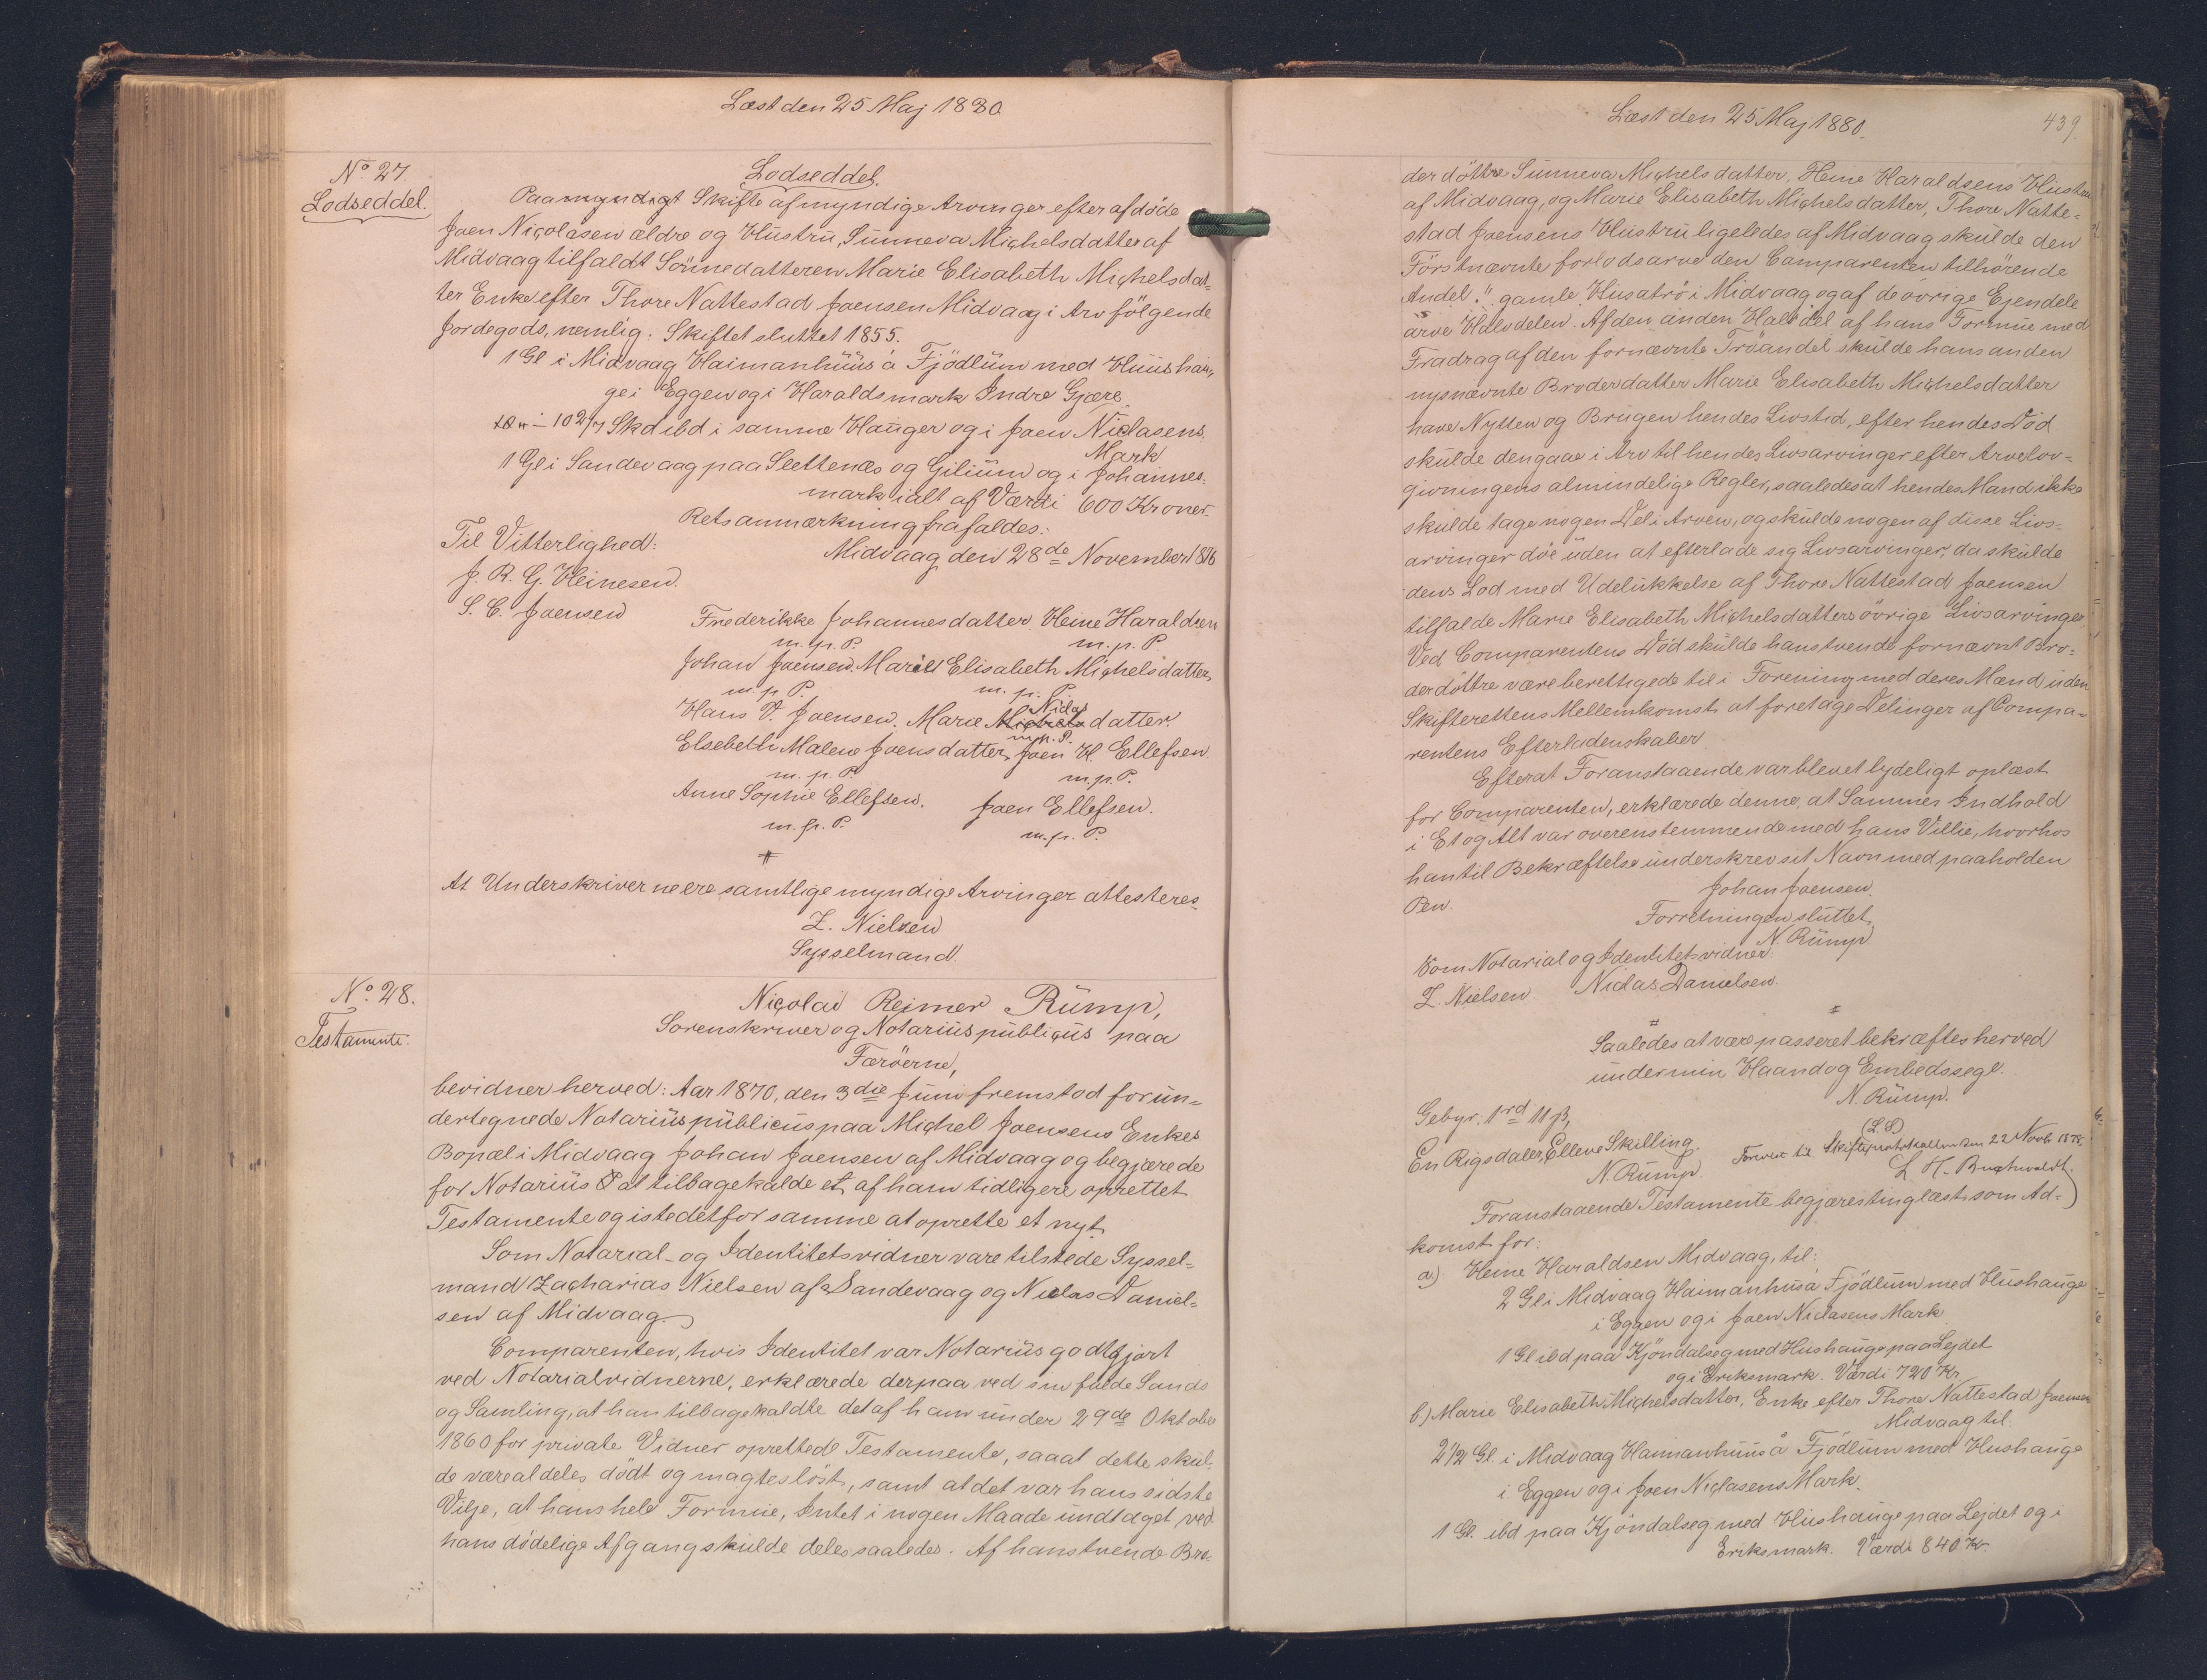 Læst den 25 Maj 1880.
No. 27.
Lodseddel.
Lodseddel.
Paa myndigt Skifte af myndige Arvinger efter afdöde
Joen Nicolasen ældre og Hustru, Sunneva Michelsdatter af
Midvaag tilfaldt Sönnedatteren Marie Elisabeth Michelsdat=
ter Enke efter Thore Nattestad Joensen Midvaag i Arv fölgende
Jordegods, nemlig: Skiftet sluttet 1855.
1 Gl i Midvaag Haimanhuus á Fjödlum med Huushau,
ge i Eggen og i Haraldsmark Indre Gjære
10 2/7 Skd ibd i samme Hauger og i Joen Niclasens
Mark
1 Gl i Sandevaag paa Slettenæs og Gilium og i Johannes=
mark ialt af Værdi 600 Kroner.
Retsanmærkning frafaldes.
Til Vitterlighed:
Midvaag den 28de November 1876
J. R. G. Heinesen.
S. C. Joensen
Frederikke Johannesdatter Heine Haraldsen
m. p. P. m. p. P.
Johan Joensen. Marie Elisabeth Michelsdatter,
m. p. P. m. p. P.
Niclas
Hans V. Joensen. Marie Michels datter.
m. p. P.
Elsebeth Malene Joensdatter, Joen H. Ellefsen.
m. p. P. m. p. P.
Anne Sophie Ellefsen. Joen Ellefsen.
m. p. P. m. p. P.
At Underskriverne ere samtlige myndige Arvinger attesteres
Z. Nielsen
Sysselmand.
No. 28.
Testamente.
Nicolai Reimer Rümp,
Sorenskriver og Notarius publicus paa
Færöerne,
bevidner herved: Aar 1870, den 3die Juni fremstod for un=
dertegnede Notarius publicus paa Michel Joensens Enkes
Bopæl i Midvaag Johan Joensen af Midvaag og begjærede
for Notarius P at tilbagekalde et af ham tidligere oprettet
Testamente og istedetfor samme at oprette et nyt.
Som Notarial- og Identitetsvidner vare tilstede Syssel=
mand Zacharias Nielsen af Sandevaag og Niclas Daniel=
sen af Midvaag.
Comparenten, hvis Identitet var Notarius godtgjort
ved Notarialvidnerne, erklærede derpaa ved sin fulde Sands
og Samling, at han tilbagekaldte det af ham under 29de Oktober
1860 for private Vidner oprettede Testamente, saaat dette skul=
de være aldeles dödt og magteslöst, samt at det var hans sidste
Vilje, at hans hele Formue, Intet i nogen Maade undtaget, ved
hans dödelige Afgang skulde deles saaledes. Af hans tvende Bro=
Læst den 25 Maj 1880.
439
derdöttre Sunneva Michelsdatter, Heine Haraldsens Hustru
af Midvaag, og Marie Elisabeth Michelsdatter, Thore Natte=
stad Joensens Hustru ligeledes af Midvaag skulde den
Förstnævnte forlods arve den Comparenten tilhörende
Andel i gamle Husatrö i Midvaag og af de övrige Ejendele
arve Halvdelen. Af den anden Halvdel af hans Formue med
Fradrag af den fornævnte Tröandel skulde hans anden
nysnævnte Broderdatter Marie Elisabeth Michelsdatter
have Nytten og Brugen hendes Livstid, efter hendes Död
skulde den gaae i Arv til hendes Livsarvinger efter Arvelov=
givningens almindelige Regler, saaledes at hendes Mand ikke
skulde tage nogen Del i Arven, og skulde nogen af disse Livs=
arvinger döe uden at efterlade sig Livsarvinger, da skulde
dens Lod med Udelukkelse af Thore Nattestad Joensen
tilfalde Marie Elisabeth Michelsdatters övrige Livsarvinger.
Ved Comparentens Död skulde hans tvende fornævnt Bro=
derdöttre være berettigede til i Forening med deres Mænd uden
Skifterettens Mellemkomst at foretage Delinger af Compa=
rentens Efterladenskaber
Efterat Foranstaaende var blevet lydeligt oplæst
for Comparenten, erklærede denne, at Sammes Indhold
i Et og Alt var overenstemmende med hans Villie, hvorhos
han til Bekræftelse underskrev sit Navn med paaholden
Pen.
Johan Joensen.
Forretningen sluttet,
N. Rümp
Som Notarial og Identitetsvidner.
Z. Nielsen Niclas Danielsen.
Saaledes at være passeret bekræftes herved
under min Haand og Embedssegl.
N. Rümp.
(L. S)
Gebyr. 1rd 11 ß,
En Rigsdaler, Elleve Skilling.
N. Rümp.
Forevist til Skifteprotokollen den 22 Novb 1878.
L. H. Buchwaldt.
Foranstaaende Testamente begjæres tinglæst som Ad=
komst for:
a) Heine Haraldsen Midvaag, til:
2 Gl i Midvaag Haimanhus á Fjödlum med Hushauge
i Eggen og i Joen Niclasens Mark
1 Gl ibd paa Kjöndalseg med Hushauge paa Lejdet
og i Eriksmark. Værdi 720 Kr
b) Marie Elisabeth Michelsdatter, Enke efter Thore Nattestad Joensen
Midvaag til.
2 1/2 Gl. i Midvaag Haimanhuus á Fjödlum med Hushauge
i Eggen og i Joen Niclasens Mark.
1 Gl. ibd paa Kjöndalseg med Hushauge paa Lejdet og i
Eriksmark. Værdi 840 Kr.